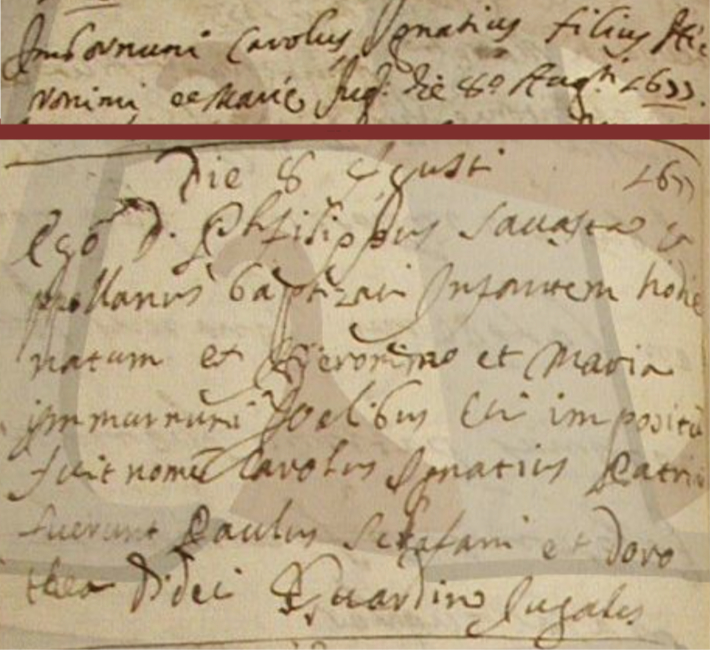 Imbornuni Carolus Ignatius filius Hie
ronimi et Marie Jug: die 8º Augti 1677.
Die 8 Agusti 1677
Ego D. Philippus
baptizavi Infantem hodie
natum et Hieronimo et Maria
immurnuni Joelibus Cui impositu
fuit nome Carolus Ignatius Patrini
fuerunt Paulus Sclafani et doro
thea Jugales